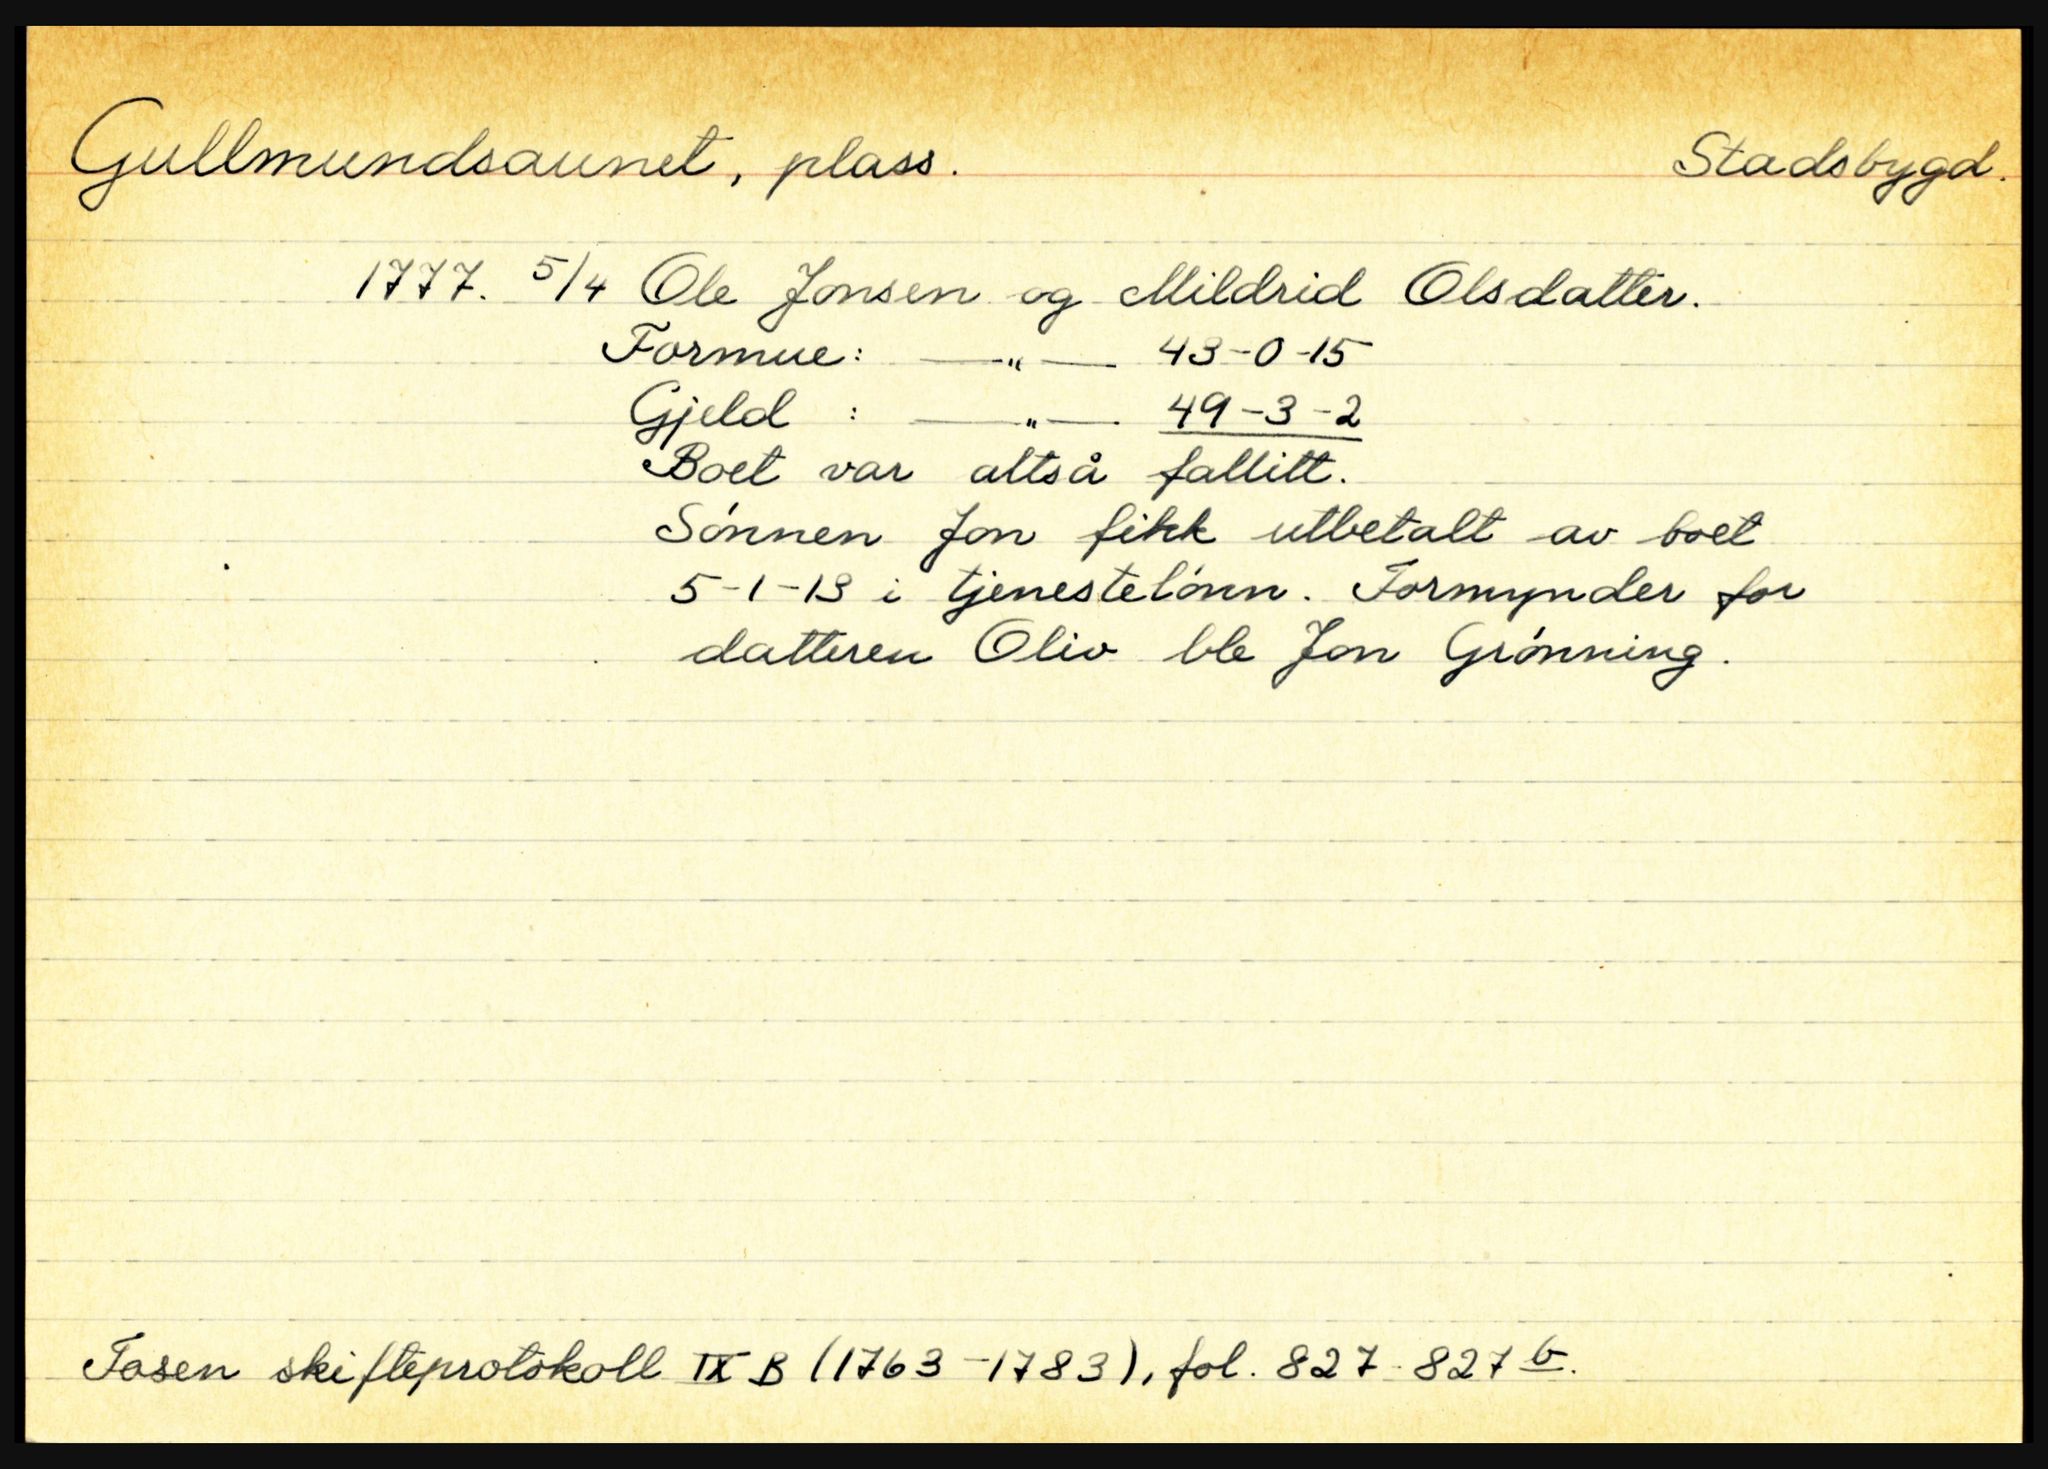 Gullmundsaunet, plass. Stadsbygd.
1777. 5/4 Ole Jonsen og Mildrid Olsdatter.
Formue: —„— 43-0-15
Gjeld : —„— 49-3-2
Boet var altså fallitt.
Sónnen Jon fikk utbetalt av boet
5-1-13 i tjenestelónn. Formynder for
datteren Oliv ble Jon Grónning.
Fosen skifteprotokoll IX B (1763-1783), fol. 827-827 b.